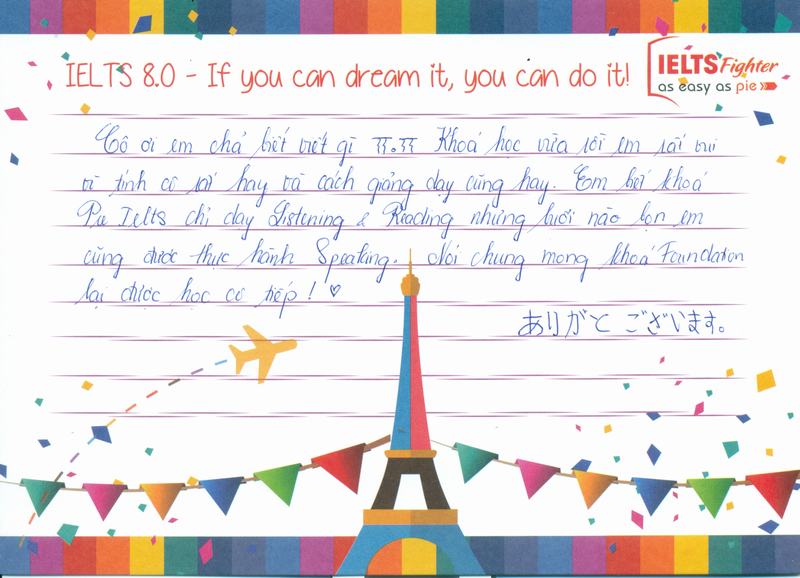 IELTS 8.0 - If you can dream it, you can do it!
IELTS Fighter
as easy as pie
Cô ơi em chả biết viết gì ㅠ.ㅠ Khoá học vừa rồi em rất vui
vì tính cô rất hay và cách giảng dạy cũng hay. Em biết khoá
Pre Ielts chỉ dạy Listening & Reading nhưng buổi nào bọn em
cũng được thực hành Speaking. Nói chung mong khoá Foundation
lại được học cô tiếp! ♡
ありがとございます。